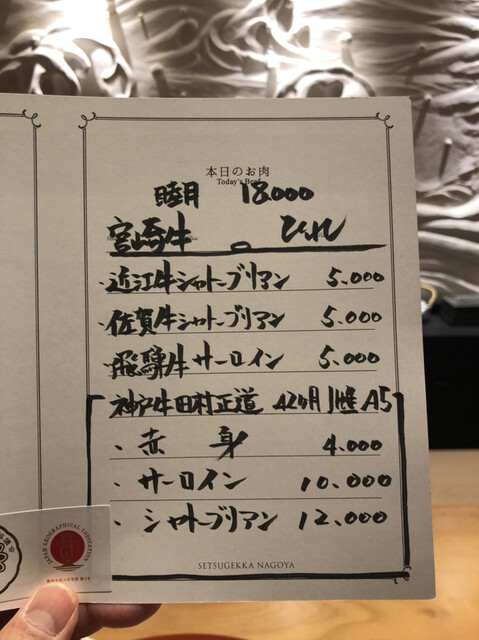 本日のお肉
Today's Beef
睦月 18.000
宮崎牛の ひれ
・近江牛シャトーブリアン 5.000
・佐賀牛シャトーブリアン 5.000
・飛騨牛サーロイン 5.000
神戸牛田村正道 42ヶ月 雌 A5
・赤身 4.000
・サーロイン 10.000
・シャトーブリアン 12.000
SETSUGEKKA NAGOYA
JAPAN GEOGRAPHICAL INDICATION
GI